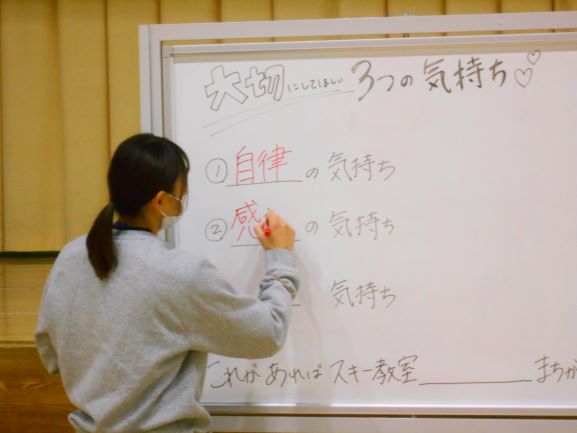 大切にしてほしい 3つの気持ち♡♡
① 自律 の 気持ち
② 感 の 気持ち
気持ち
これがあればスキー教室________まちが